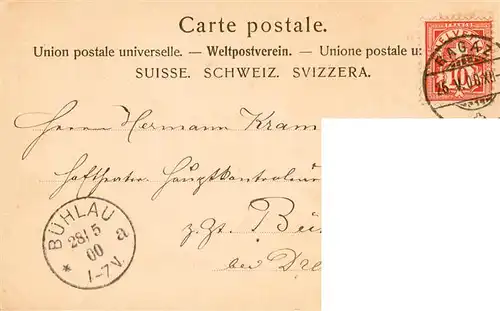 Carte postale.
Union postale universelle. — Weltpostverein. — Unione postale u:
SUISSE. SCHWEIZ. SVIZZERA.
HELVE
FRANCO
10
RAGAZ
26. V. 00. XII
Herrn Hermann Kram
Hoftheater-Hauptkontroleur
z. Zt. Bü
bei Dre
BÜHLAU
28/5
00
1-7V.
* a